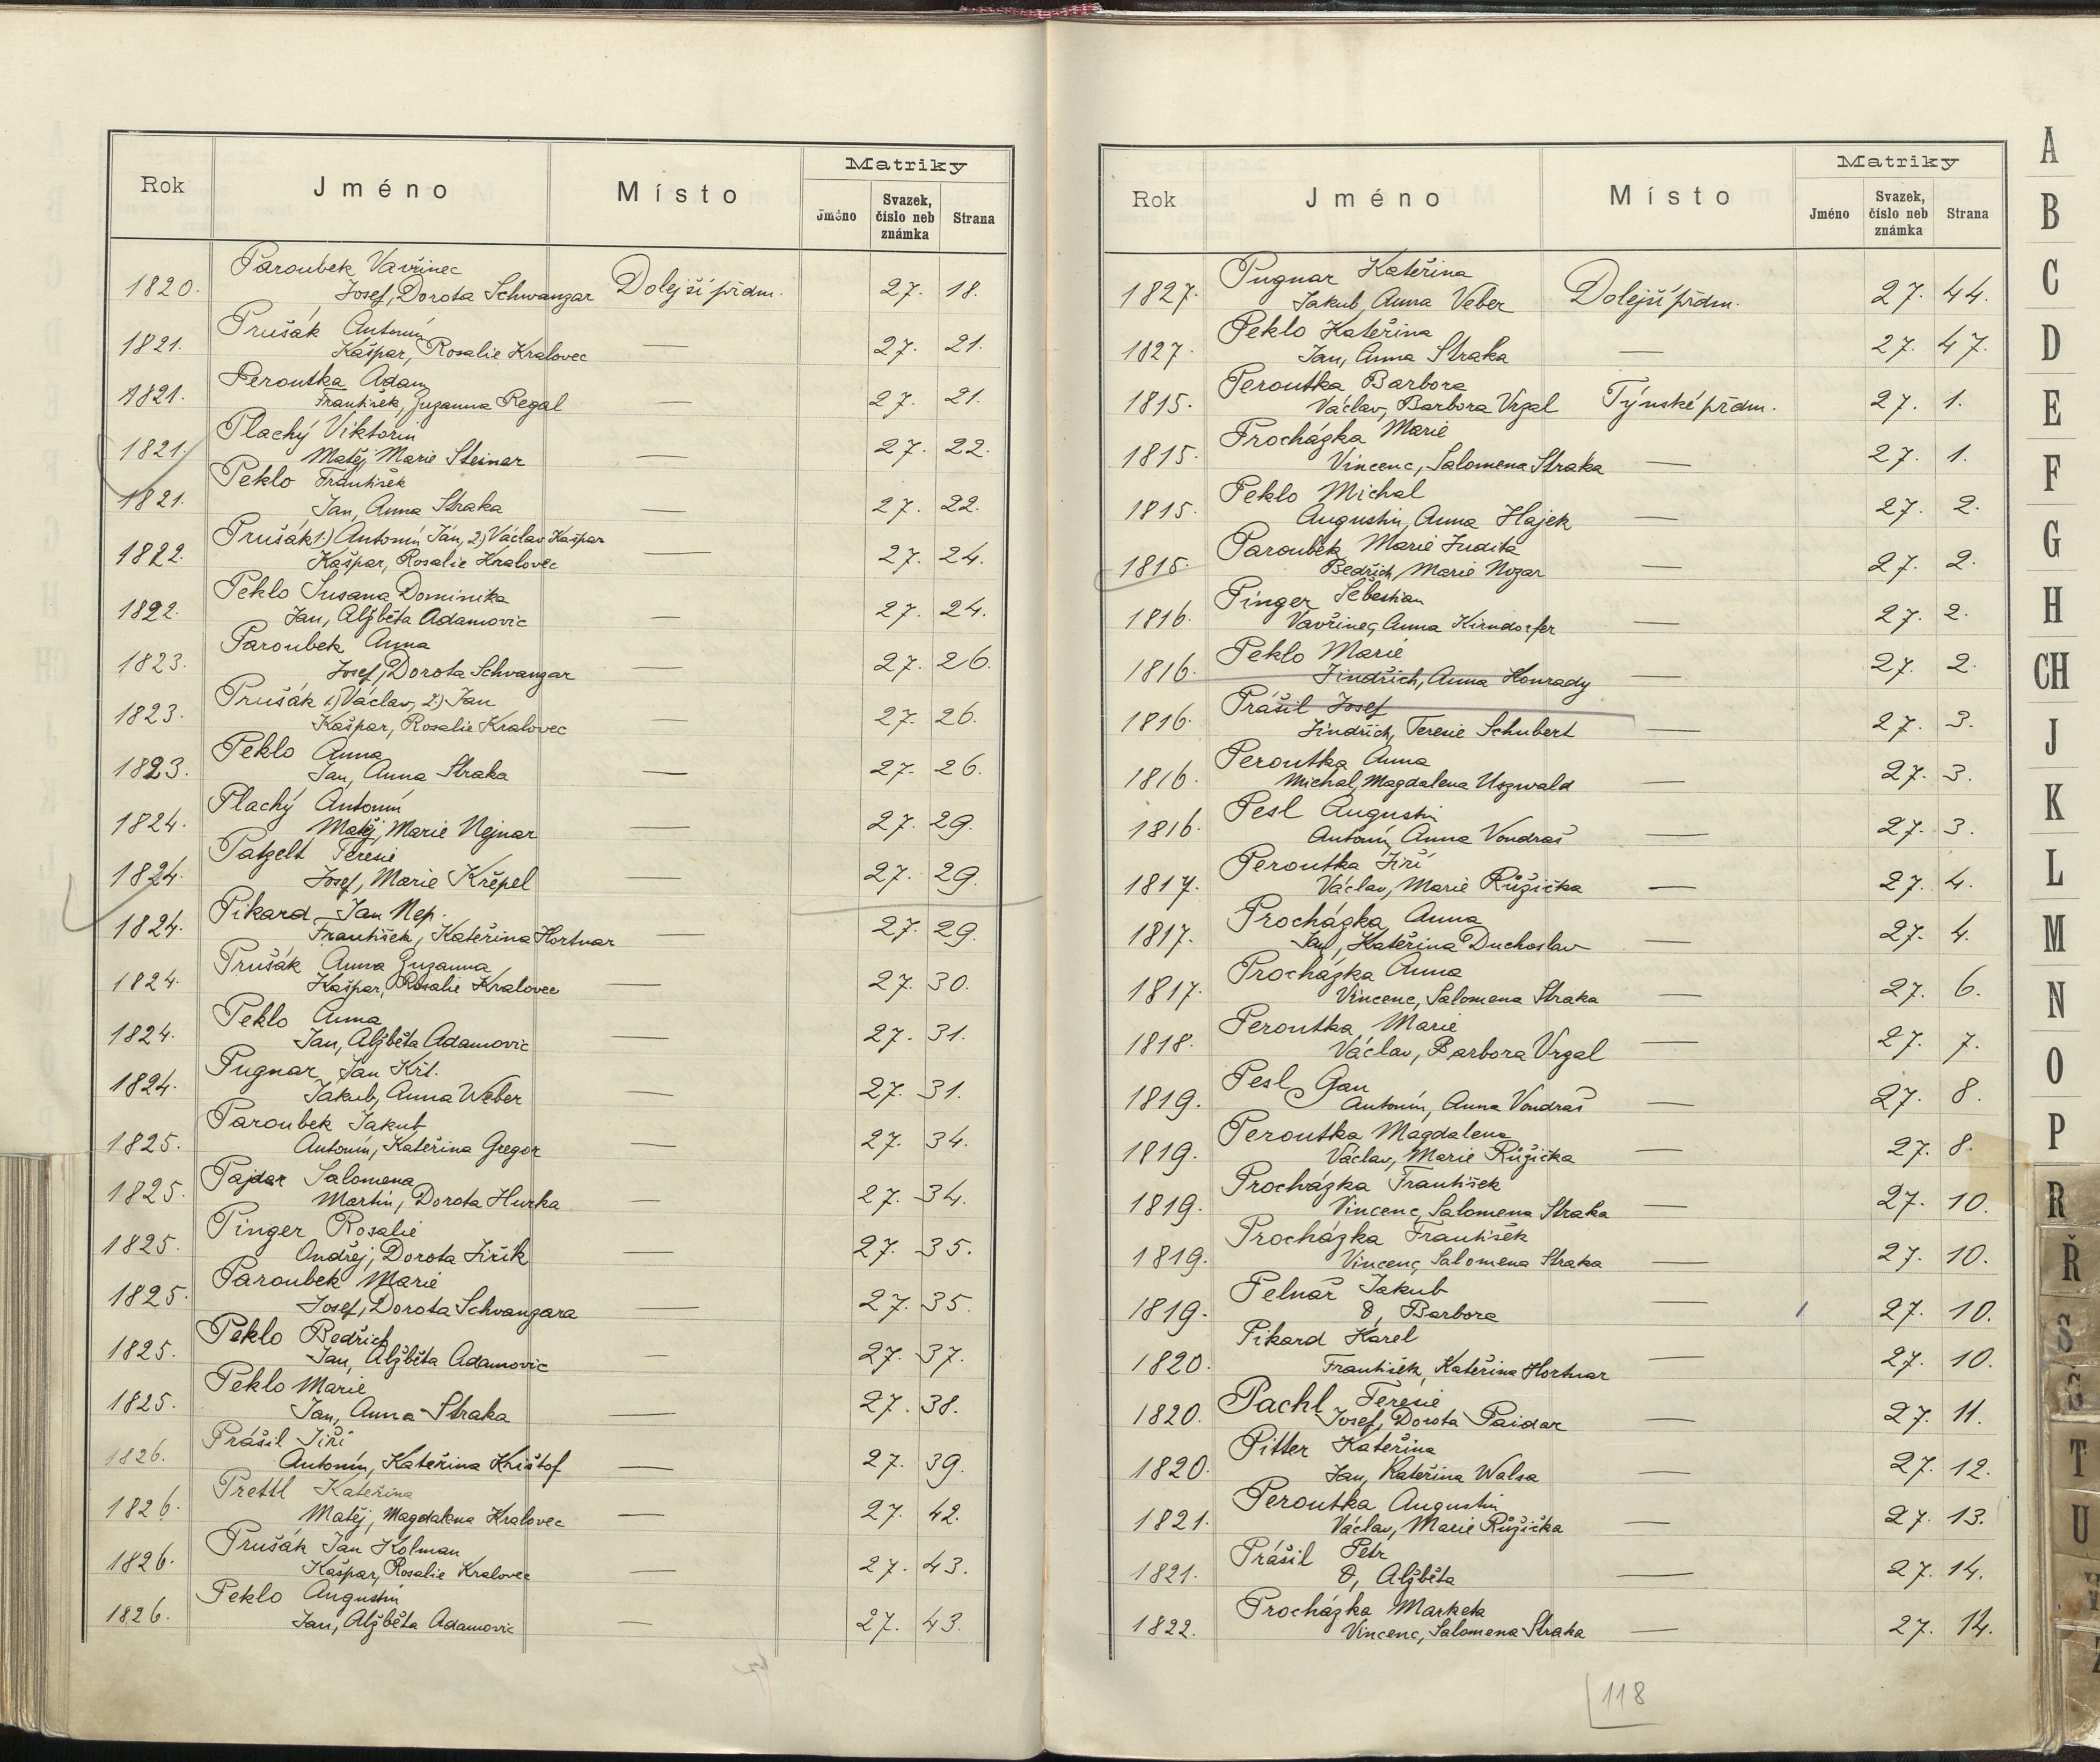 Rok Jméno Místo Matriky
Jméno Svazek, číslo neb známka Strana
Paroubek Vavřinec
1820. Josef, Dorota Schwangar Dolejší předm. 27. 18.
Prušák Antonín
1821. Kašpar, Rosalie Kralovec — 27. 21.
Peroutka Adam
1821. František, Zuzanna Regal — 27. 21.
Plachý Viktorin
1821. Matěj Marie Steinar — 27. 22.
Peklo František
1821. Jan, Anna Straka — 27. 22.
Prušák 1.) Antonín Ján, 2) Václav Kašpar
1822. Kašpar, Rosalie Kralovec — 27. 24.
Peklo Susana Dominika
1822. Jan, Alžběta Adamovic — 27. 24.
Paroubek Anna
1823. Josef, Dorota Schvangar — 27. 26.
Prušák 1.) Václav, 2.) Jan
1823. Kašpar, Rosalie Kralovec — 27. 26.
Peklo Anna
1823. Jan, Anna Straka — 27. 26.
Plachý Antonín
1824. Matěj, Marie Nejnar — 27. 29.
Patzelt Teresie
1824. Josef, Marie Křepel — 27. 29.
Pikard Jan Nep.
1824. František, Kateřina Hortnar — 27. 29.
Prušák Anna Zuzanna
1824. Kašpar, Rosalie Kralovec — 27. 30.
Peklo Anna
1824. Jan, Alžběta Adamovic — 27. 31.
Pugnar Jan Křt.
1824. Jakub, Anna Weber — 27. 31.
Paroubek Jakub
1825. Antonín, Kateřina Gregor — 27. 34.
Pajdar Salomena
1825. Martin, Dorota Hurka — 27. 34.
Pinger Rosalie
1825. Ondřej, Dorota Jiřik — 27. 35.
Paroubek Marie
1825. Josef, Dorota Schvangara — 27. 35.
Peklo Bedřich
1825. Jan, Alžběta Adamovic — 27. 37.
Peklo Marie
1825. Jan, Anna Straka — 27. 38.
Prášil Jiří
1826. Antonín, Kateřina Krištof — 27. 39.
Prettl Kateřina
1826. Matěj, Magdalena Kralovec — 27. 42.
Prušák Jan Kolman
1826. Kašpar, Rosalie Kralovec — 27. 43.
Peklo Augustin
1826. Jan, Alžběta Adamovic — 27. 43.
Rok Jméno Místo Matriky
Jméno Svazek, číslo neb známka Strana
Pugnar Kateřina
1827. Jakub, Anna Veber Dolejší předm. 27. 44.
Peklo Kateřina
1827. Jan, Anna Straka — 27. 47.
Peroutka Barbora
1815. Václav, Barbora Vrzal Týnské předm. 27. 1.
Procházka Marie
1815. Vincenc, Salomena Straka — 27. 1.
Peklo Michal
1815. Augustin, Anna Hajek — 27. 2.
Paroubek Marie Judita
1815. Bedřich, Marie Nozar — 27. 2.
Pinger Sebestian
1816. Vavřinec, Anna Kirndorfer — 27. 2.
Peklo Marie
1816. Jindřich, Anna Honrady — 27. 2.
Prášil Josef
1816. Jindřich, Teresie Schubert — 27. 3.
Peroutka Anna
1816. Michal, Magdalena Uszwald — 27. 3.
Pesl Augustin
1816. Antonín, Anna Vondraš — 27. 3.
Peroutka Jiří
1817. Václav, Marie Růžička — 27. 4.
Procházka Anna
1817. Jan, Kateřina Duchoslav — 27. 4.
Procházka Anna
1817. Vincenc, Salomena Straka — 27. 6.
Peroutka Marie
1818. Václav, Barbora Vrzal — 27. 7.
Pesl Jan
1819. Antonín, Anna Vondraš — 27. 8.
Peroutka Magdalena
1819. Václav, Marie Růžička — 27. 8.
Procházka František
1819. Vincenc, Salomena Straka — 27. 10.
Procházka František
1819. Vincenc, Salomena Straka — 27. 10.
Pelnář Jakub
1819. 0, Barbora — 27. 10.
Pikard Karel
1820. František, Kateřina Hortnar — 27. 10.
Pachl Teresie
1820. Josef, Dorota Paidar — 27. 11.
Pitter Kateřina
1820. Jan, Kateřina Walsa — 27. 12.
Peroutka Augustin
1821. Václav, Marie Růžička — 27. 13.
Prášil Petr
1821. 0, Alžběta — 27. 14.
Procházka Marketa
1822. Vincenc, Salomena Straka — 27. 14.
118
A
B
C
D
E
F
G
H
CH
J
K
L
M
N
O
P
R
Ř
S
Š
T
U
V
Z